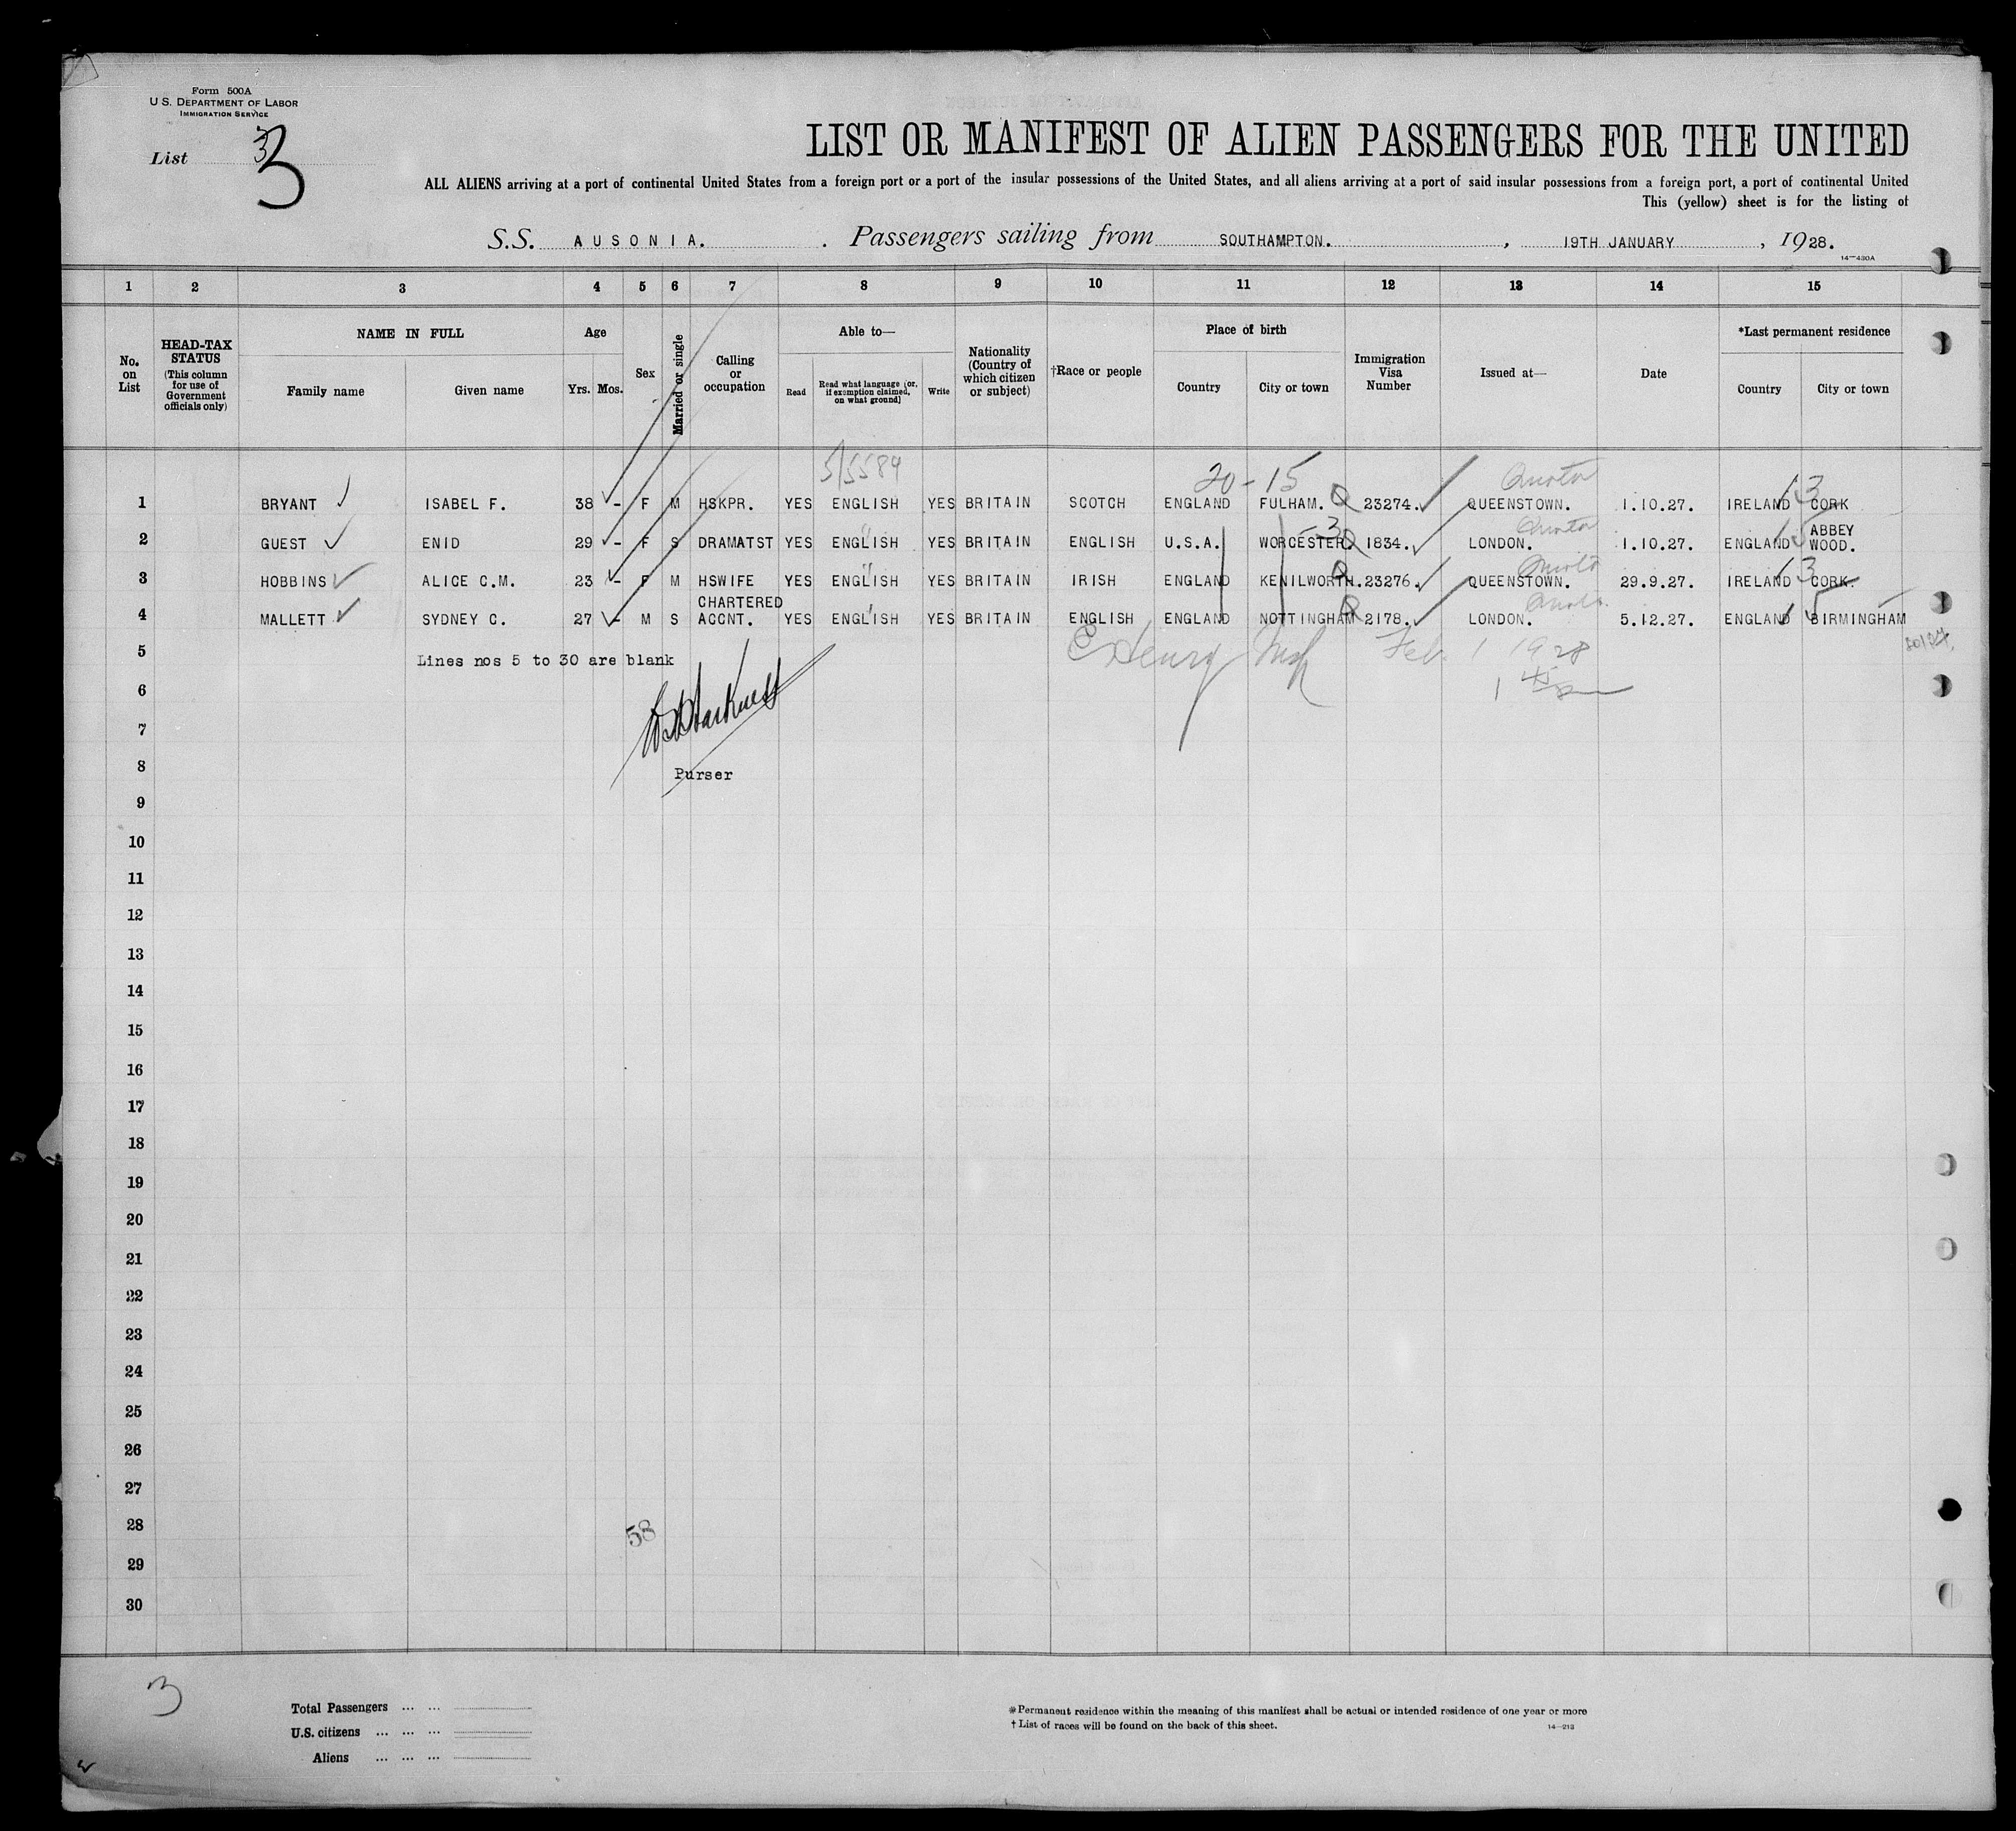 Form 500A
U.S. DEPARTMENT OF LABOR
IMMIGRATION SERVICE
List 3
3
LIST OR MANIFEST OF ALIEN PASSENGERS FOR THE UNITED
ALL ALIENS arriving at a port of continental United States from a foreign port or a port of the insular possessions of the United States, and all aliens arriving at a port of said insular possessions from a foreign port, a port of continental United
This (yellow) sheet is for the listing of
S.S. AUSONIA. Passengers sailing from SOUTHAMPTON. , 19TH JANUARY , 1928.
14—430A
1 2 3 4 5 6 7 8 9 10 11 12 13 14 15
No. on List
HEAD-TAX STATUS (This column for use of Government officials only)
NAME IN FULL
Family name Given name
Age
Yrs. Mos.
Sex
Married or single
Calling or occupation
Able to—
Read Read what language [or, if exemption claimed, on what ground] Write
Nationality (Country of which citizen or subject)
†Race or people
Place of birth
Country City or town
Immigration Visa Number
Issued at—
Date
*Last permanent residence
Country City or town
5/5584 20-15 Quota 3
1 BRYANT ISABEL F. 38 - F M HSKPR. YES ENGLISH YES BRITAIN SCOTCH ENGLAND FULHAM. Q 23274. QUEENSTOWN. 1.10.27. IRELAND CORK
-30 Quota 5
2 GUEST ENID 29 - F S DRAMATST YES ENGLISH YES BRITAIN ENGLISH U.S.A. WORCESTER. 1834. LONDON. 1.10.27. ENGLAND ABBEY WOOD.
Quota 3
3 HOBBINS ALICE C.M. 23 - F M HSWIFE YES ENGLISH YES BRITAIN IRISH ENGLAND KENILWORTH. Q 23276. QUEENSTOWN. 29.9.27. IRELAND CORK.
Quota 5
4 MALLETT SYDNEY C. 27 - M S CHARTERED ACCNT. YES ENGLISH YES BRITAIN ENGLISH ENGLAND NOTTINGHAM Q 2178. LONDON. 5.12.27. ENGLAND BIRMINGHAM
5 Lines nos 5 to 30 are blank Henry Insp Feb. 1 1928
6
7
8 Purser
9
10
11
12
13
14
15
16
17
18
19
20
21
22
23
24
25
26
27
28 58
29
30
3
Total Passengers ... ...
U.S. citizens ... ... ...
Aliens ... ... ...
*Permanent residence within the meaning of this manifest shall be actual or intended residence of one year or more
†List of races will be found on the back of this sheet. 14—213